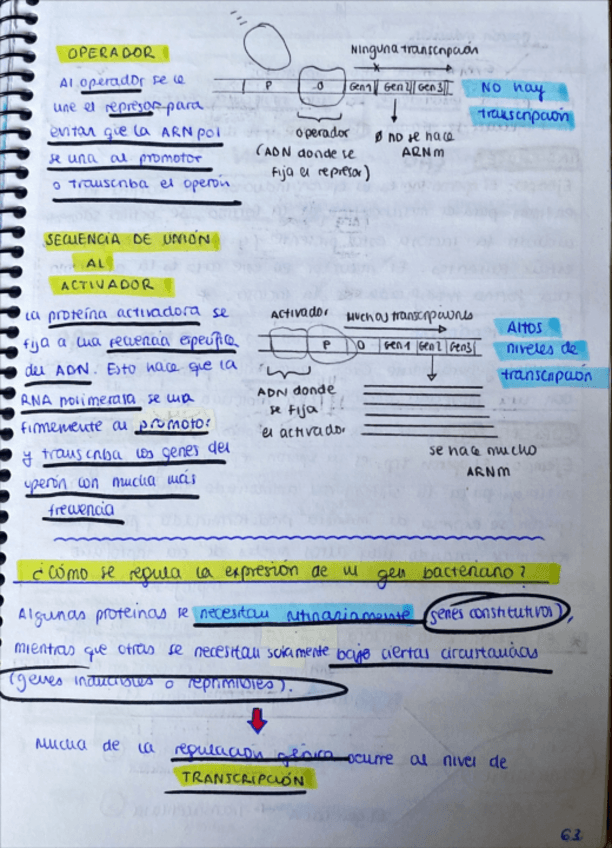 OPERADOR
Al operador se le
une el represor para
evitar que la ARNpol
se una al promotor
o transcriba el operón
Ninguna transcripción
P O Gen1 Gen2 Gen3
No hay
transcripción
operador
(ADN donde se
fija el represor)
Ø no se hace
ARNm
SECUENCIA DE UNIÓN
AL
ACTIVADOR
La proteína activadora se
fija a una secuencia específica
del ADN. Esto hace que la
RNA polimerasa se una
firmemente al promotor
y transcriba los genes del
operón con mucha más
frecuencia
Activador Muchas transcripciones
P O Gen1 Gen2 Gen3
Altos
niveles de
transcripción
ADN donde
se fija
el activador
se hace mucho
ARNm
¿Cómo se regula la expresión de un gen bacteriano?
Algunas proteínas se necesitan rutinariamente (genes constitutivos),
mientras que otras se necesitan solamente bajo ciertas circustancias
(genes inducibles o reprimibles).
Mucha de la regulación génica ocurre al nivel de
TRANSCRIPCIÓN
63